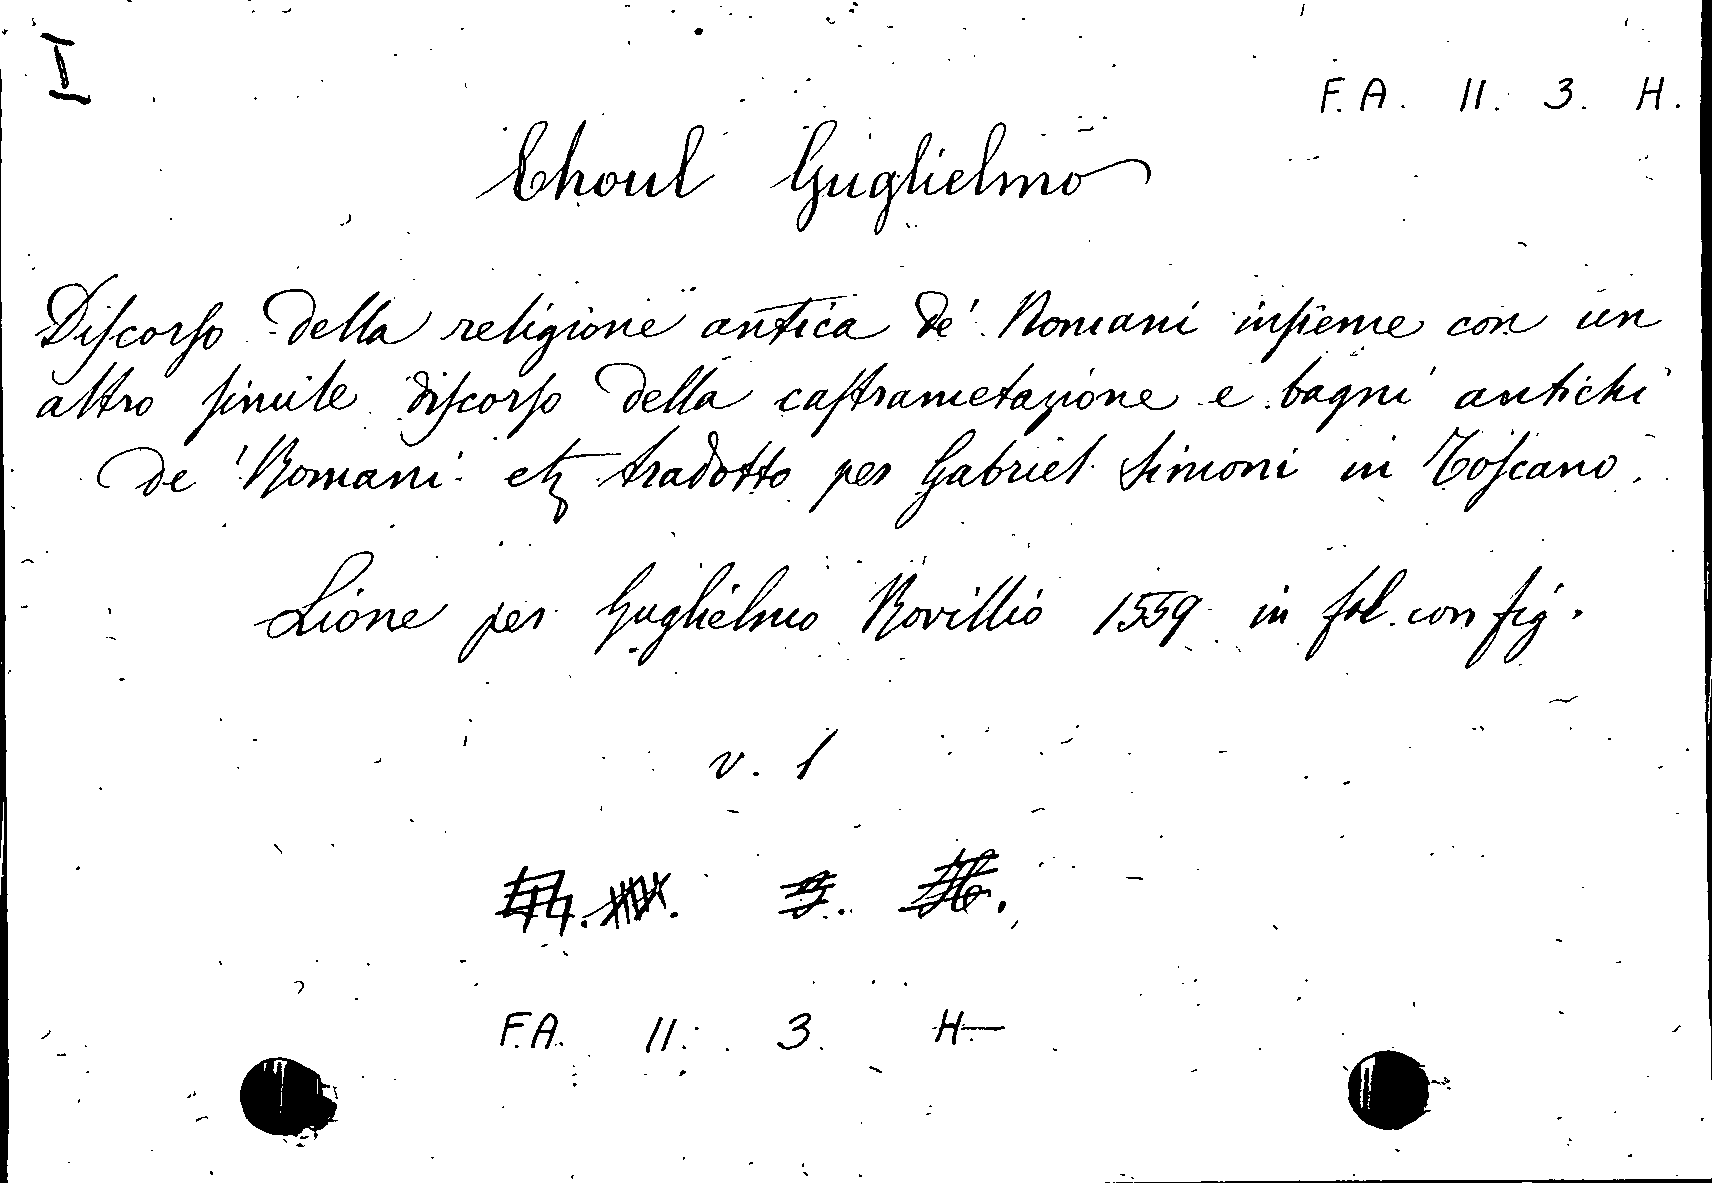 I
F. A. 11. 3. H.
Choul Guglielmo
Diſcorſo della religione antica de' Romani inſieme con un
altro ſimile diſcorſo della caſtrametazione e bagni antichi
de' Romani etz tradotto per Gabriel Simoni in Toſcano.
Lione per Guglielmo Rovillio 1559 in fol. con fig.
v. 1
F.A. 11. 3. H